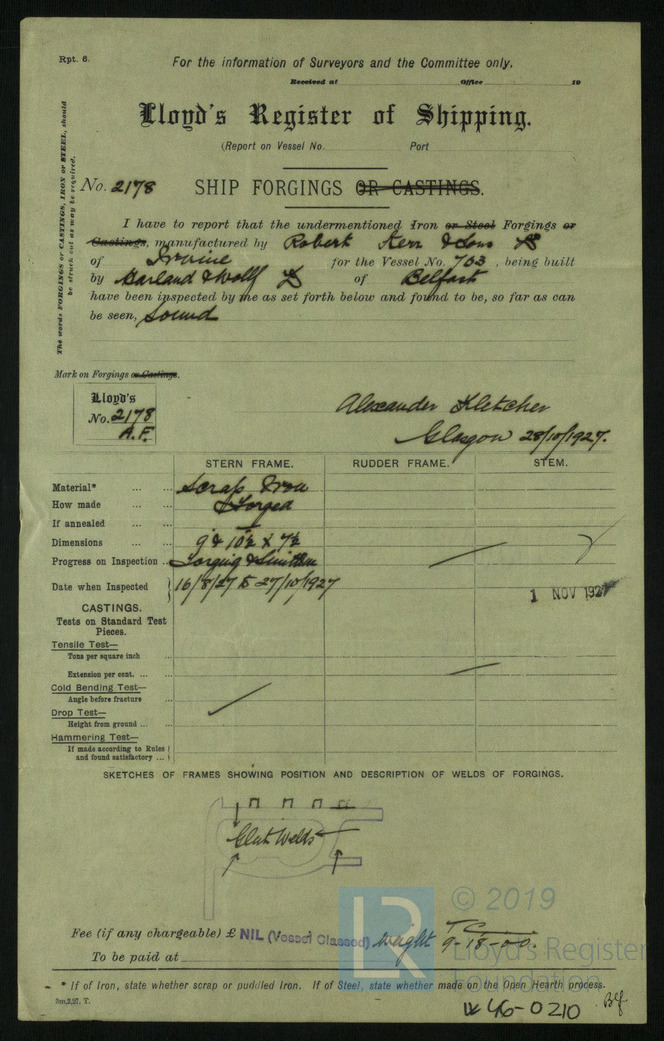 Rpt. 6.
For the information of Surveyors and the Committee only.
Received at Office 19
Lloyd's Register of Shipping.
(Report on Vessel No. Port
The words FORGINGS or CASTINGS, IRON or STEEL, should be struck out as may be required.
No. 2178 SHIP FORGINGS OR CASTINGS.
I have to report that the undermentioned Iron or Steel Forgings or
Castings, manufactured by Robert Kerr & Sons Ld
of Irvine for the Vessel No. 703, being built
by Harland & Wolff Ld of Belfast
have been inspected by me as set forth below and found to be, so far as can
be seen, sound
Mark on Forgings or Castings.
Lloyd's
No. 2178
A.F.
Alexander Fletcher
Glasgow 28/10/1927.
STERN FRAME. RUDDER FRAME. STEM.
Material* ... ... Scrap Iron
How made ... ... Forged
If annealed ... ...
Dimensions ... ... 9 & 10½ x 7½
Progress on Inspection ... Forging &
Date when Inspected 16/8/27 to 27/10/1927
1 NOV 1927
CASTINGS.
Tests on Standard Test
Pieces.
Tensile Test—
Tons per square inch
Extension per cent. ...
Cold Bending Test—
Angle before fracture
Drop Test—
Height from ground ...
Hammering Test—
If made according to Rules
and found satisfactory ...
SKETCHES OF FRAMES SHOWING POSITION AND DESCRIPTION OF WELDS OF FORGINGS.
Glut Welds
© 2019
LR
Lloyd's Register
Foundation
Fee (if any chargeable) £ NIL (Vessel Classed) weight T C
9-18-0-0.
To be paid at
* If of Iron, state whether scrap or puddled Iron. If of Steel, state whether made on the Open Hearth process.
3m,2,27. T.
W46-0210